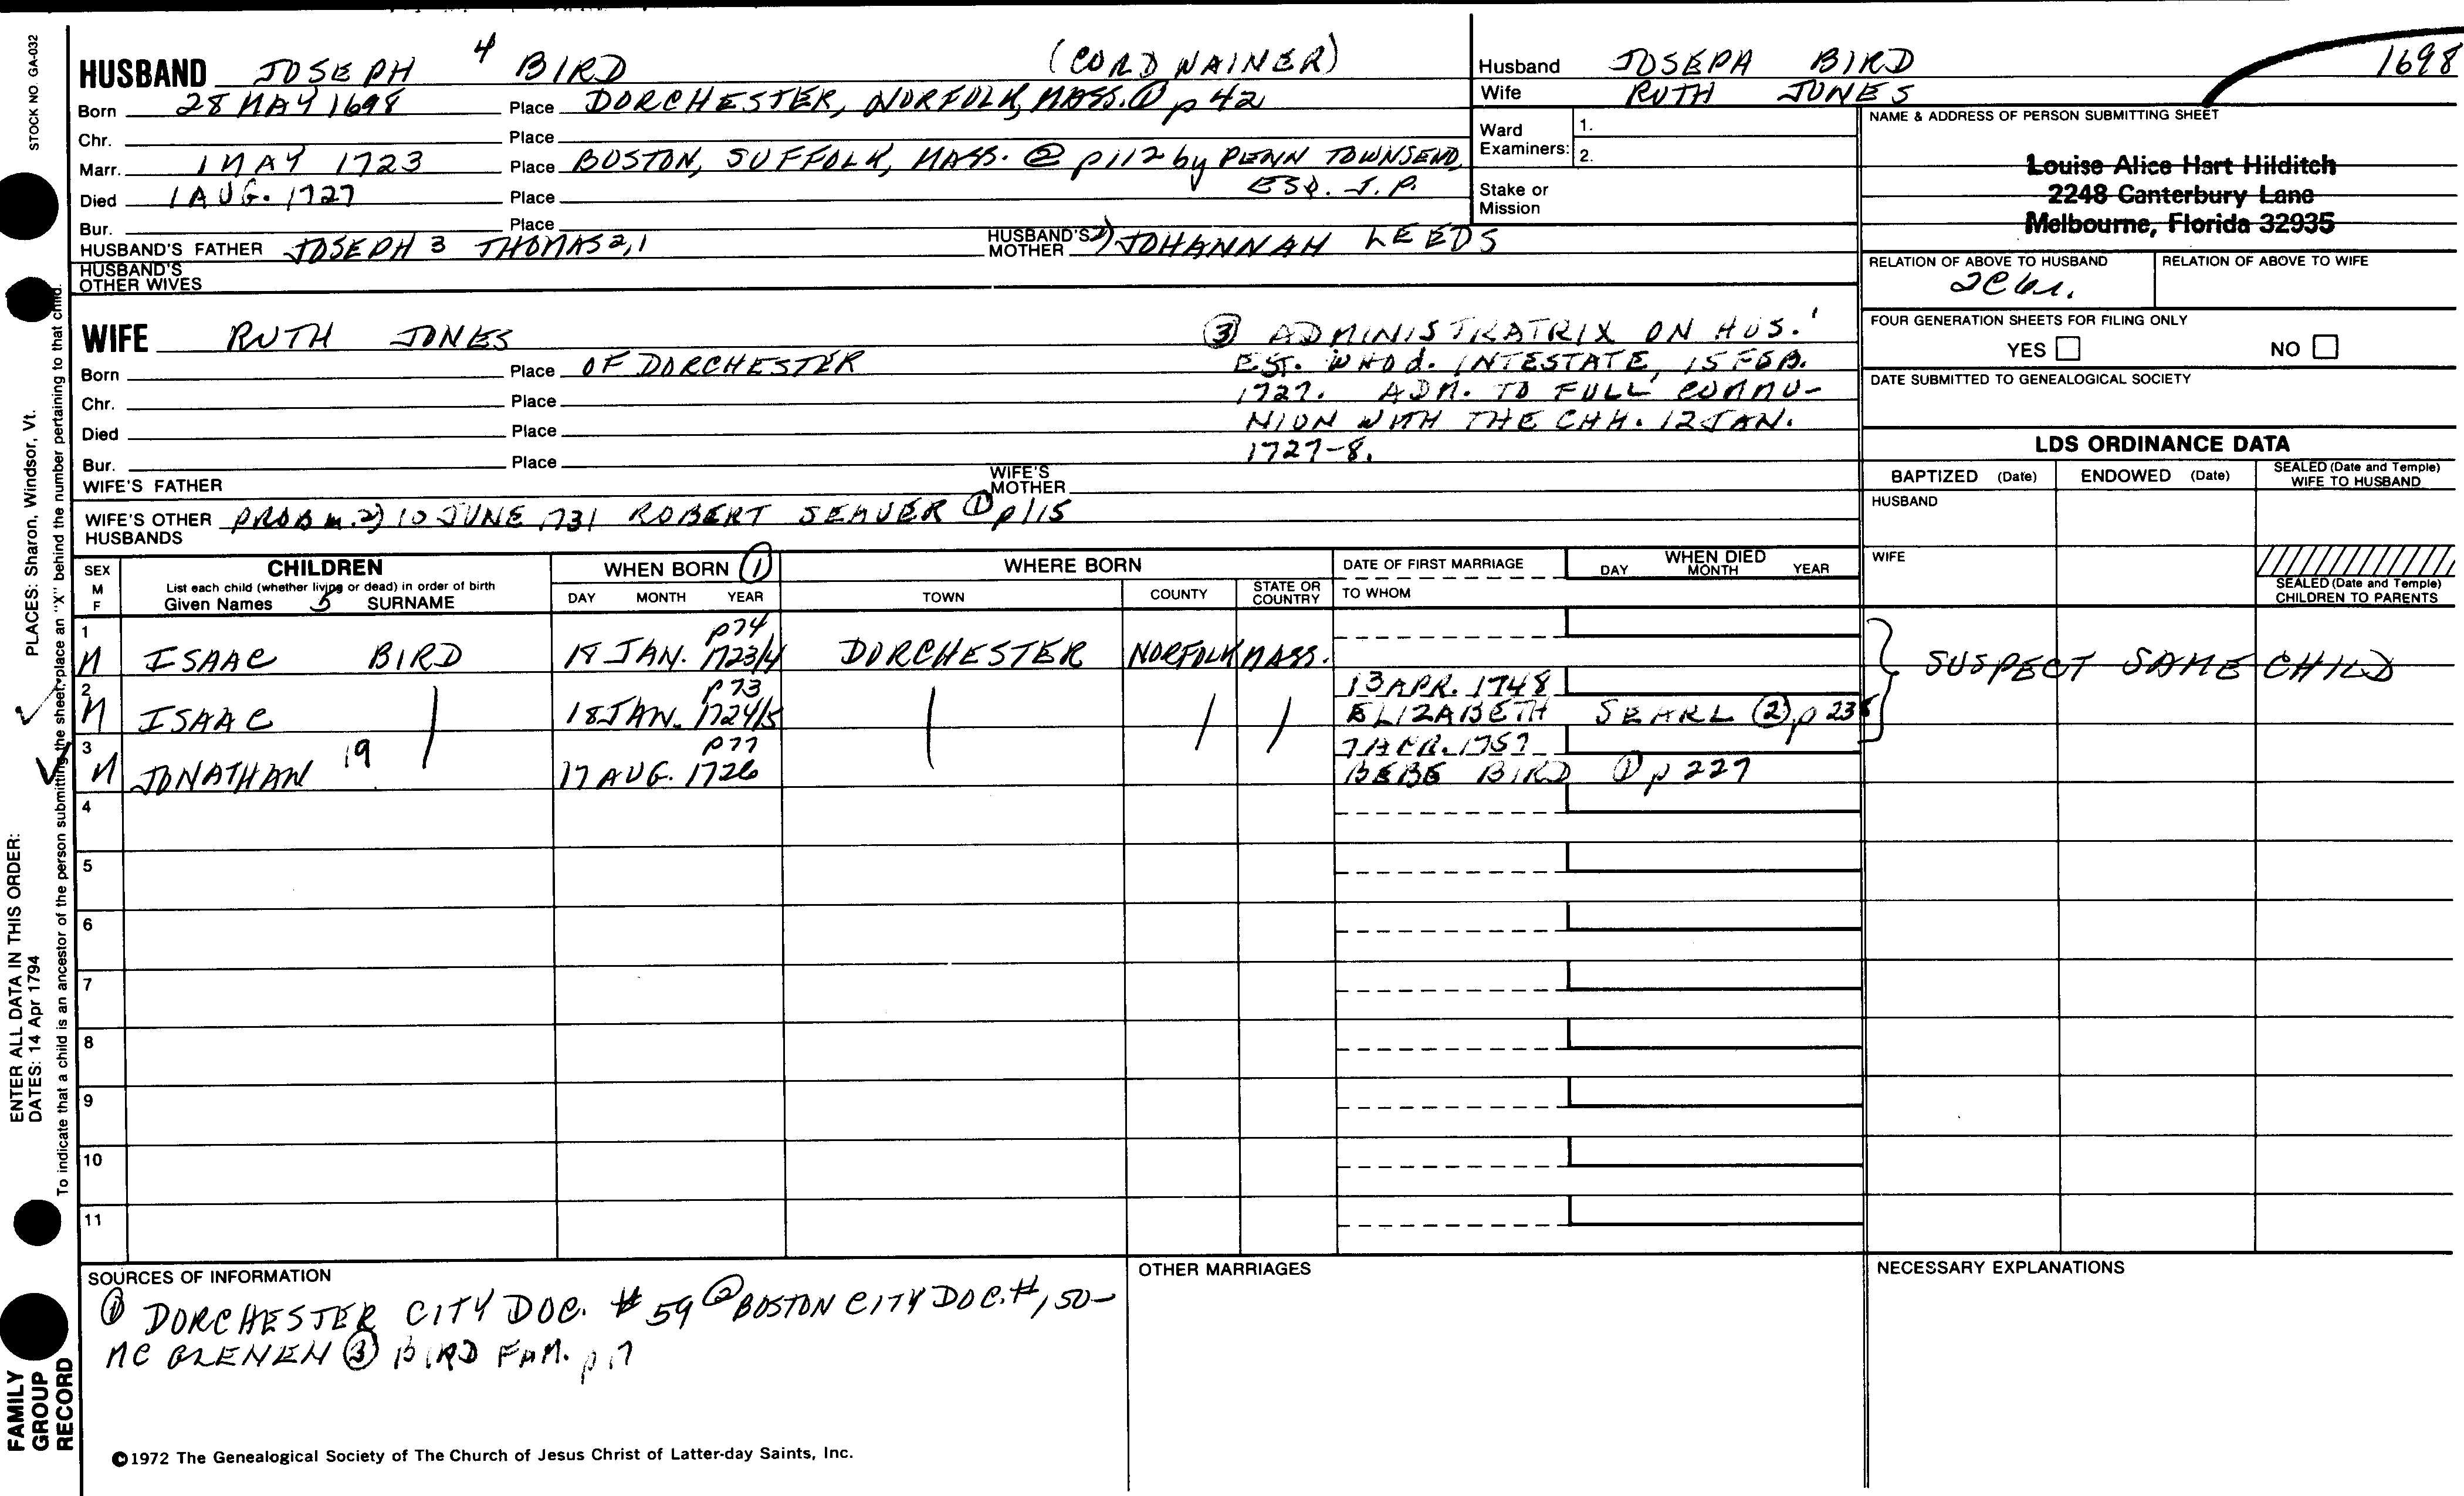 STOCK NO. GA-032
HUSBAND JOSEPH 4 BIRD (CORDWAINER)
Born 28 MAY 1698 Place DORCHESTER, NORFOLK, MASS. ① p 42
Chr. Place
Marr. 1 MAY 1723 Place BOSTON, SUFFOLK, MASS. ② p112 by PENN TOWNSEND,
ESQ. J.P.
Died 1 AUG. 1727 Place
Bur. Place
HUSBAND'S FATHER JOSEPH 3 THOMAS 2,1 HUSBAND'S MOTHER JOHANNAH LEEDS
HUSBAND'S OTHER WIVES
Husband JOSEPH BIRD 1698
Wife RUTH JONES
Ward Examiners: 1.
2.
Stake or Mission
NAME & ADDRESS OF PERSON SUBMITTING SHEET
Louise Alice Hart Hilditch
2248 Canterbury Lane
Melbourne, Florida 32935
RELATION OF ABOVE TO HUSBAND RELATION OF ABOVE TO WIFE
FOUR GENERATION SHEETS FOR FILING ONLY
YES NO
DATE SUBMITTED TO GENEALOGICAL SOCIETY
WIFE RUTH JONES
Born Place OF DORCHESTER
Chr. Place
Died Place
Bur. Place
③ ADMINISTRATRIX ON HUS.'
EST. WHO d. INTESTATE, 15 FEB.
1727. ADM. TO FULL COMMU-
NION WITH THE CHH. 12 JAN.
1727-8.
WIFE'S FATHER WIFE'S MOTHER
WIFE'S OTHER HUSBANDS PROB m. 2) 10 JUNE 1731 ROBERT SEAVER ① p115
LDS ORDINANCE DATA
BAPTIZED (Date) ENDOWED (Date) SEALED (Date and Temple) WIFE TO HUSBAND
HUSBAND
WIFE
SEALED (Date and Temple) CHILDREN TO PARENTS
SEX M F
CHILDREN
List each child (whether living or dead) in order of birth
Given Names 5 SURNAME
WHEN BORN ①
DAY MONTH YEAR
WHERE BORN
TOWN COUNTY STATE OR COUNTRY
DATE OF FIRST MARRIAGE
TO WHOM
WHEN DIED
DAY MONTH YEAR
1 M ISAAC BIRD 18 JAN. 1723/4 p74 DORCHESTER NORFOLK MASS.
2 M ISAAC 18 JAN. 1724/5 p73 13 APR. 1748
ELIZABETH SEARL ② p 238
SUSPECT SAME CHILD
3 M JONATHAN 19 17 AUG. 1726 p77 7 APR. 1757
BEBE BIRD ① p 227
4
5
6
7
8
9
10
11
SOURCES OF INFORMATION
① DORCHESTER CITY DOC. # 59 ② BOSTON CITY DOC. #150-
MC GLENEN ③ BIRD FAM. p 17
OTHER MARRIAGES
NECESSARY EXPLANATIONS
©1972 The Genealogical Society of The Church of Jesus Christ of Latter-day Saints, Inc.
FAMILY GROUP RECORD
ENTER ALL DATA IN THIS ORDER:
DATES: 14 Apr 1794
PLACES: Sharon, Windsor, Vt.
To indicate that a child is an ancestor of the person submitting the sheet, place an "X" behind the number pertaining to that child.